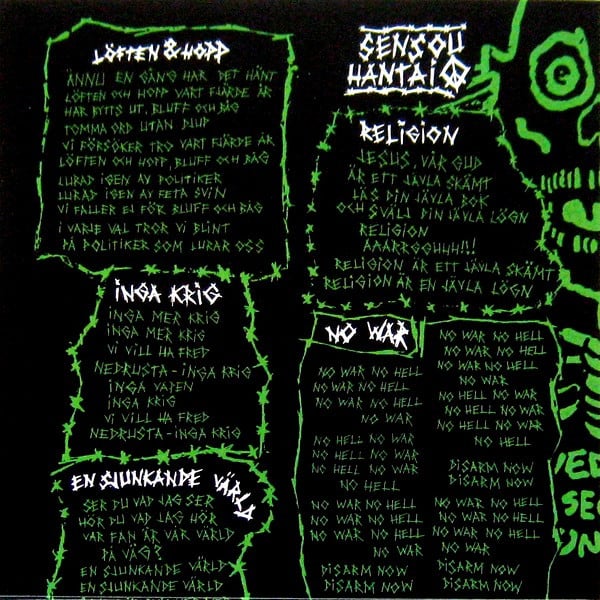 LÖFTEN & HOPP
ÄNNU EN GÅNG HAR DET HÄNT
LÖFTEN OCH HOPP VART FJÄRDE ÅR
HAR BYTTS UT, BLUFF OCH BÅG
TOMMA ORD UTAN DJUP
VI FÖRSÖKER TRO VART FJÄRDE ÅR
LÖFTEN OCH HOPP, BLUFF OCH BÅG
LURAD IGEN AV POLITIKER
LURAD IGEN AV FETA SVIN
VI FALLER EJ FÖR BLUFF OCH BÅG
I VARJE VAL TROR VI BLINT
PÅ POLITIKER SOM LURAR OSS
INGA KRIG
INGA MER KRIG
INGA MER KRIG
VI VILL HA FRED
NEDRUSTA - INGA KRIG
INGA VAPEN
INGA KRIG
VI VILL HA FRED
NEDRUSTA - INGA KRIG
EN SJUNKANDE VÄRLD
SER DU VAD JAG SER
HÖR DU VAD JAG HÖR
VAR FAN ÄR VÅR VÄRLD
PÅ VÄG?
EN SJUNKANDE VÄRLD
EN SJUNKANDE VÄRLD
SENSOU
HANTAI
RELIGION
JESUS, VÅR GUD
ÄR ETT JÄVLA SKÄMT
LÄS DIN JÄVLA BOK
OCH SVÄLJ DIN JÄVLA LÖGN
RELIGION
AAARRGGHHH!!!
RELIGION ÄR ETT JÄVLA SKÄMT
RELIGION ÄR EN JÄVLA LÖGN
NO WAR
NO WAR NO HELL
NO WAR NO HELL
NO WAR NO HELL
NO WAR
NO HELL NO WAR
NO HELL NO WAR
NO HELL NO WAR
NO HELL
NO WAR NO HELL
NO WAR NO HELL
NO WAR NO HELL
NO WAR
DISARM NOW
DISARM NOW
NO WAR NO HELL
NO WAR NO HELL
NO WAR NO HELL
NO WAR
NO HELL NO WAR
NO HELL NO WAR
NO HELL NO WAR
NO HELL
DISARM NOW
DISARM NOW
NO WAR NO HELL
NO WAR NO HELL
NO WAR NO HELL
NO WAR
DISARM NOW
DISARM NOW